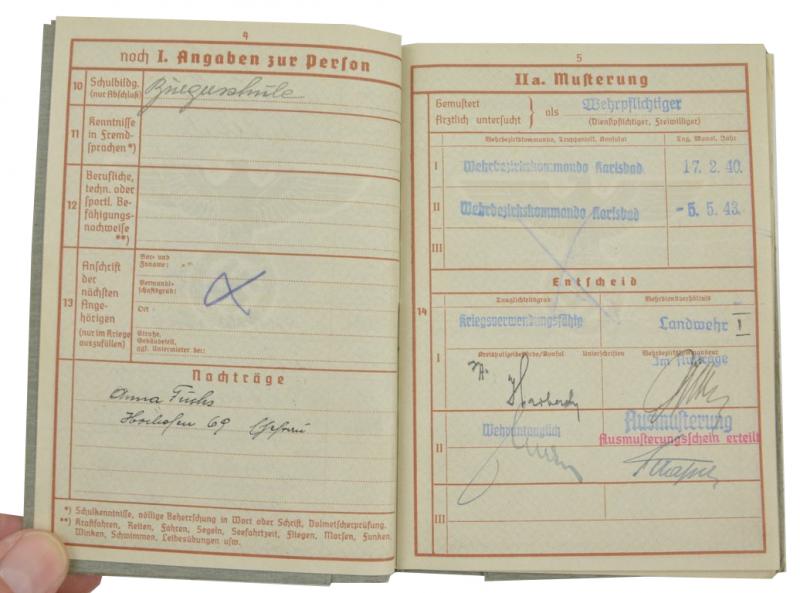 4
noch I. Angaben zur Person
10 Schulbildg. (nur Abschluß)
Bürgerschule
11 Kenntnisse in Fremdsprachen*)
12 Berufliche, techn. oder sportl. Befähigungsnachweise **)
13 Anschrift der nächsten Angehörigen (nur im Kriege auszufüllen)
Vor- und Zuname:
Verwandtschaftsgrad:
Ort
Straße, Gebäudeteil, ggf. Untermieter bei:
Nachträge
Anna Fuchs
69 Ehefrau
*) Schulkenntnisse, völlige Beherrschung in Wort oder Schrift, Dolmetscherprüfung.
**) Kraftfahren, Reiten, Fahren, Segeln, Seefahrtzeit, Fliegen, Morsen, Funken,
Winken, Schwimmen, Leibesübungen usw.
5
II a. Musterung
Gemustert
Ärztlich untersucht } als Wehrpflichtiger
(Dienstpflichtiger, Freiwilliger)
Wehrbezirkskommando, Truppenteil, Konsulat
Tag, Monat, Jahr
I Wehrbezirkskommando Karlsbad 17. 2. 40.
II Wehrbezirkskommando Karlsbad -5. 5. 43.
III
Entscheid
14
Tauglichkeitsgrad
Wehrdienstverhältnis
Kriegsverwendungsfähig
Landwehr I
I
Kreispolizeibehörde/Konsul
Unterschriften
Wehrbezirkskommandeur
Im Auftrage
II
Wehruntauglich
Ausmusterung
Ausmusterungsschein erteilt
III